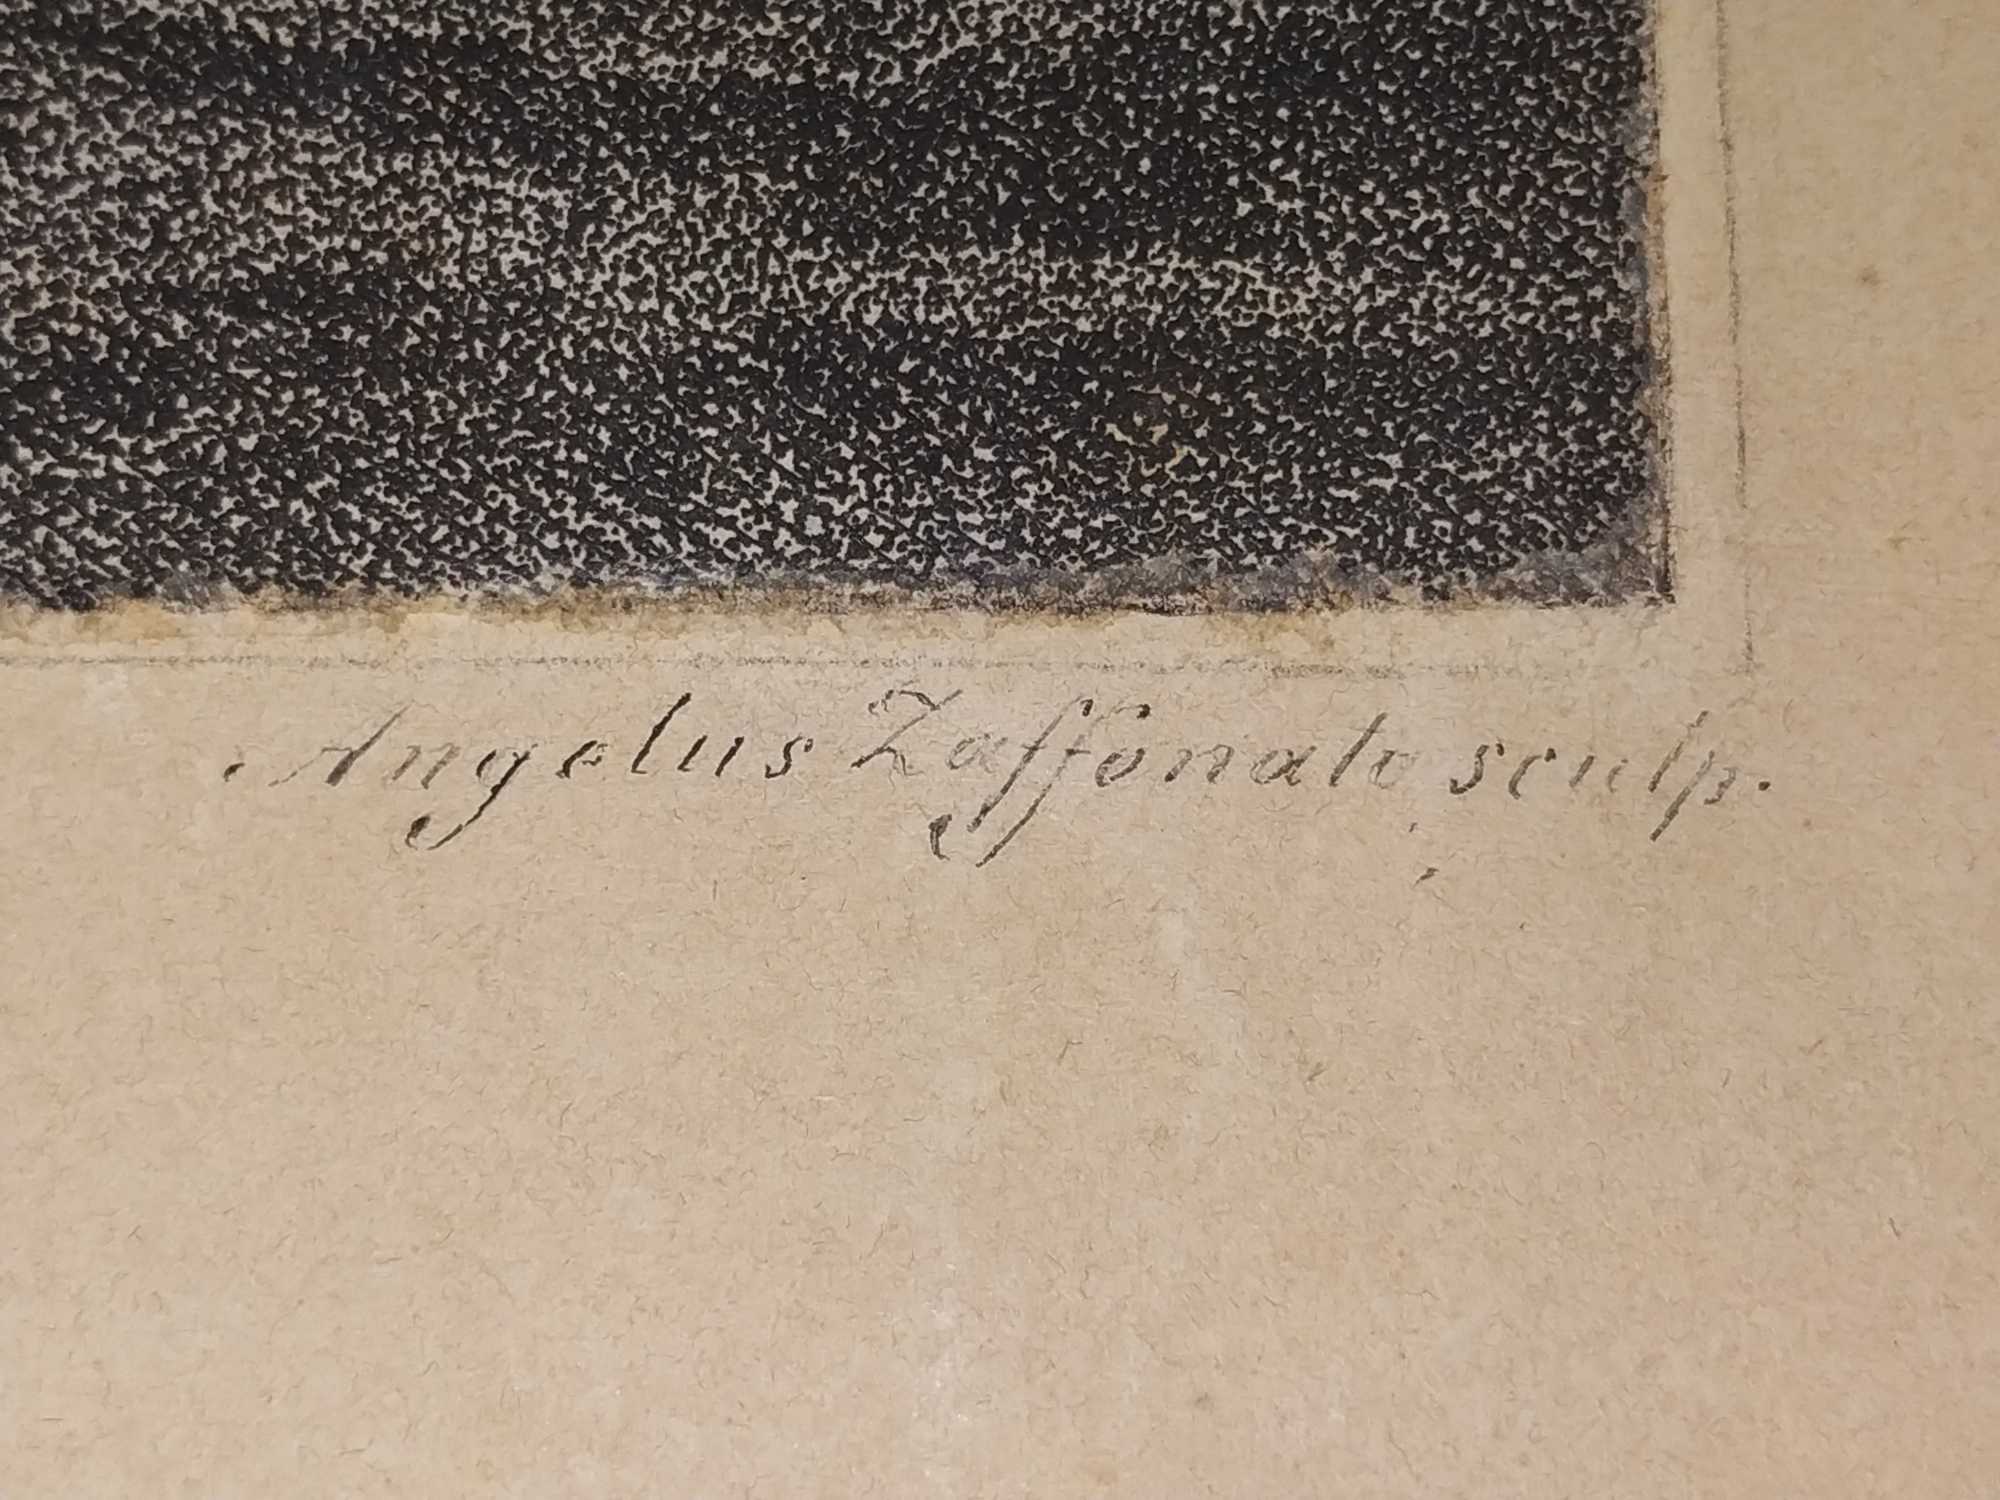 Angelus Zaffonato sculp.